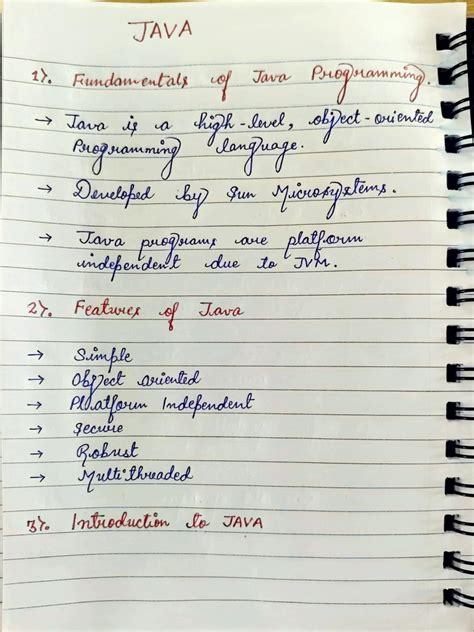 JAVA
1). Fundamentals of Java Programming.
→ Java is a high-level, object-oriented
Programming language.
→ Developed by Sun Microsystems.
→ Java programs are platform
independent due to JVM.
2). Features of Java
→ Simple
→ Object oriented
→ Platform Independent
→ Secure
→ Robust
→ Multithreaded
3). Introduction to JAVA